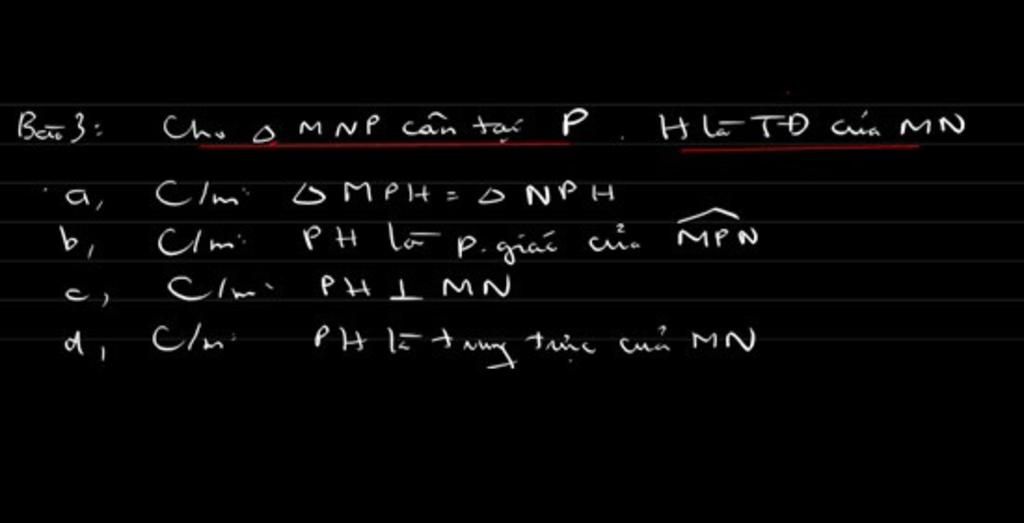 Bài 3: Cho △ MNP cân tại P. H là TĐ của MN
a, C/m: △ MPH = △ NPH
b, C/m: PH là p.giác của \widehat{MPN}
c, C/m: PH ⊥ MN
d, C/m: PH là trung trực của MN